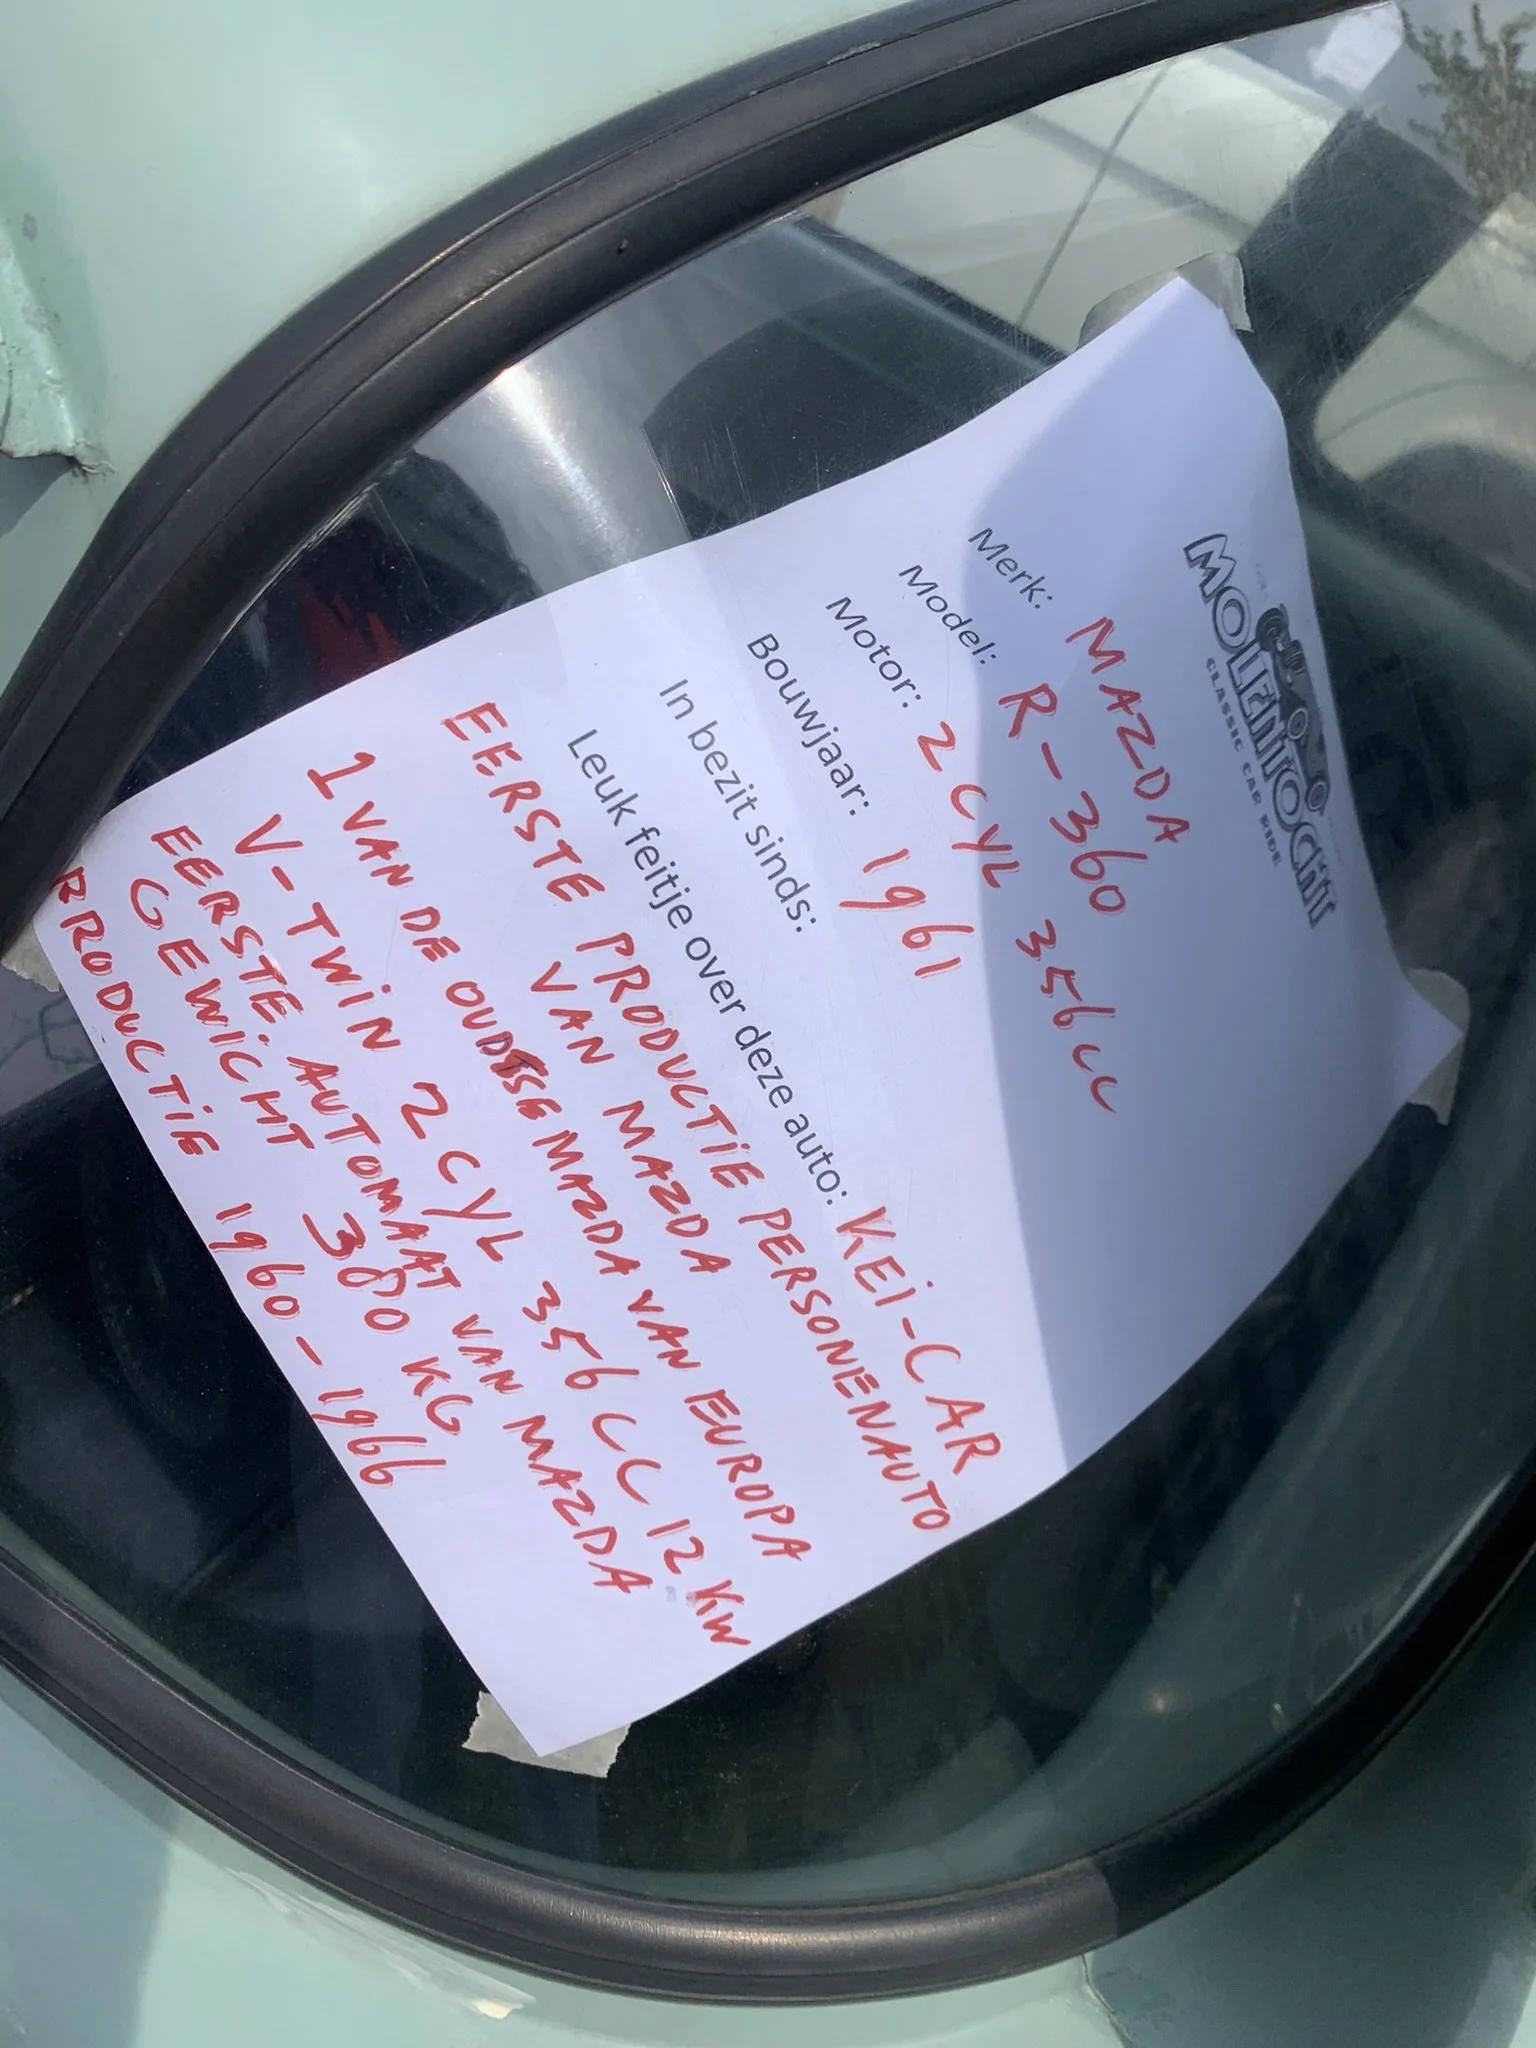 MOLENTOCHT
CLASSIC CAR RIDE
Merk: MAZDA
Model: R-360
Motor: 2 CYL 356 CC
Bouwjaar: 1961
In bezit sinds:
Leuk feitje over deze auto: KEI-CAR
EERSTE PRODUCTIE PERSONENAUTO
VAN MAZDA
1 VAN DE OUDTSE MAZDA VAN EUROPA
V-TWIN 2 CYL 356 CC 12 KW
EERSTE AUTOMAAT VAN MAZDA
GEWICHT 380 KG
PRODUCTIE 1960-1966